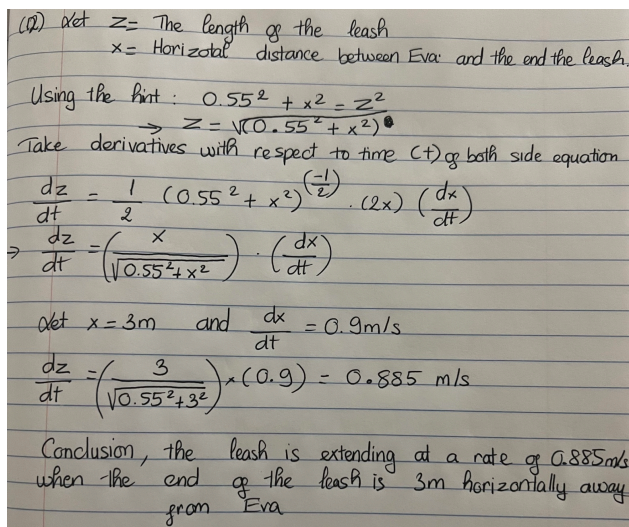 (Q2) Let z = The length of the leash
x = Horizotal distance between Eva and the end the leash.
Using the hint : 0.55² + x² = z²
→ z = √(0.55² + x²)
Take derivatives with respect to time (t) of both side equation
dz/dt = 1/2 (0.55² + x²)^(-1/2) · (2x) (dx/dt)
⇒ dz/dt = (x/√(0.55² + x²)) · (dx/dt)
Let x = 3m and dx/dt = 0.9m/s
dz/dt = (3/√(0.55² + 3²)) × (0.9) = 0.885 m/s
Conclusion, the leash is extending at a rate of 0.885m/s
when the end of the leash is 3m horizontally away
from Eva